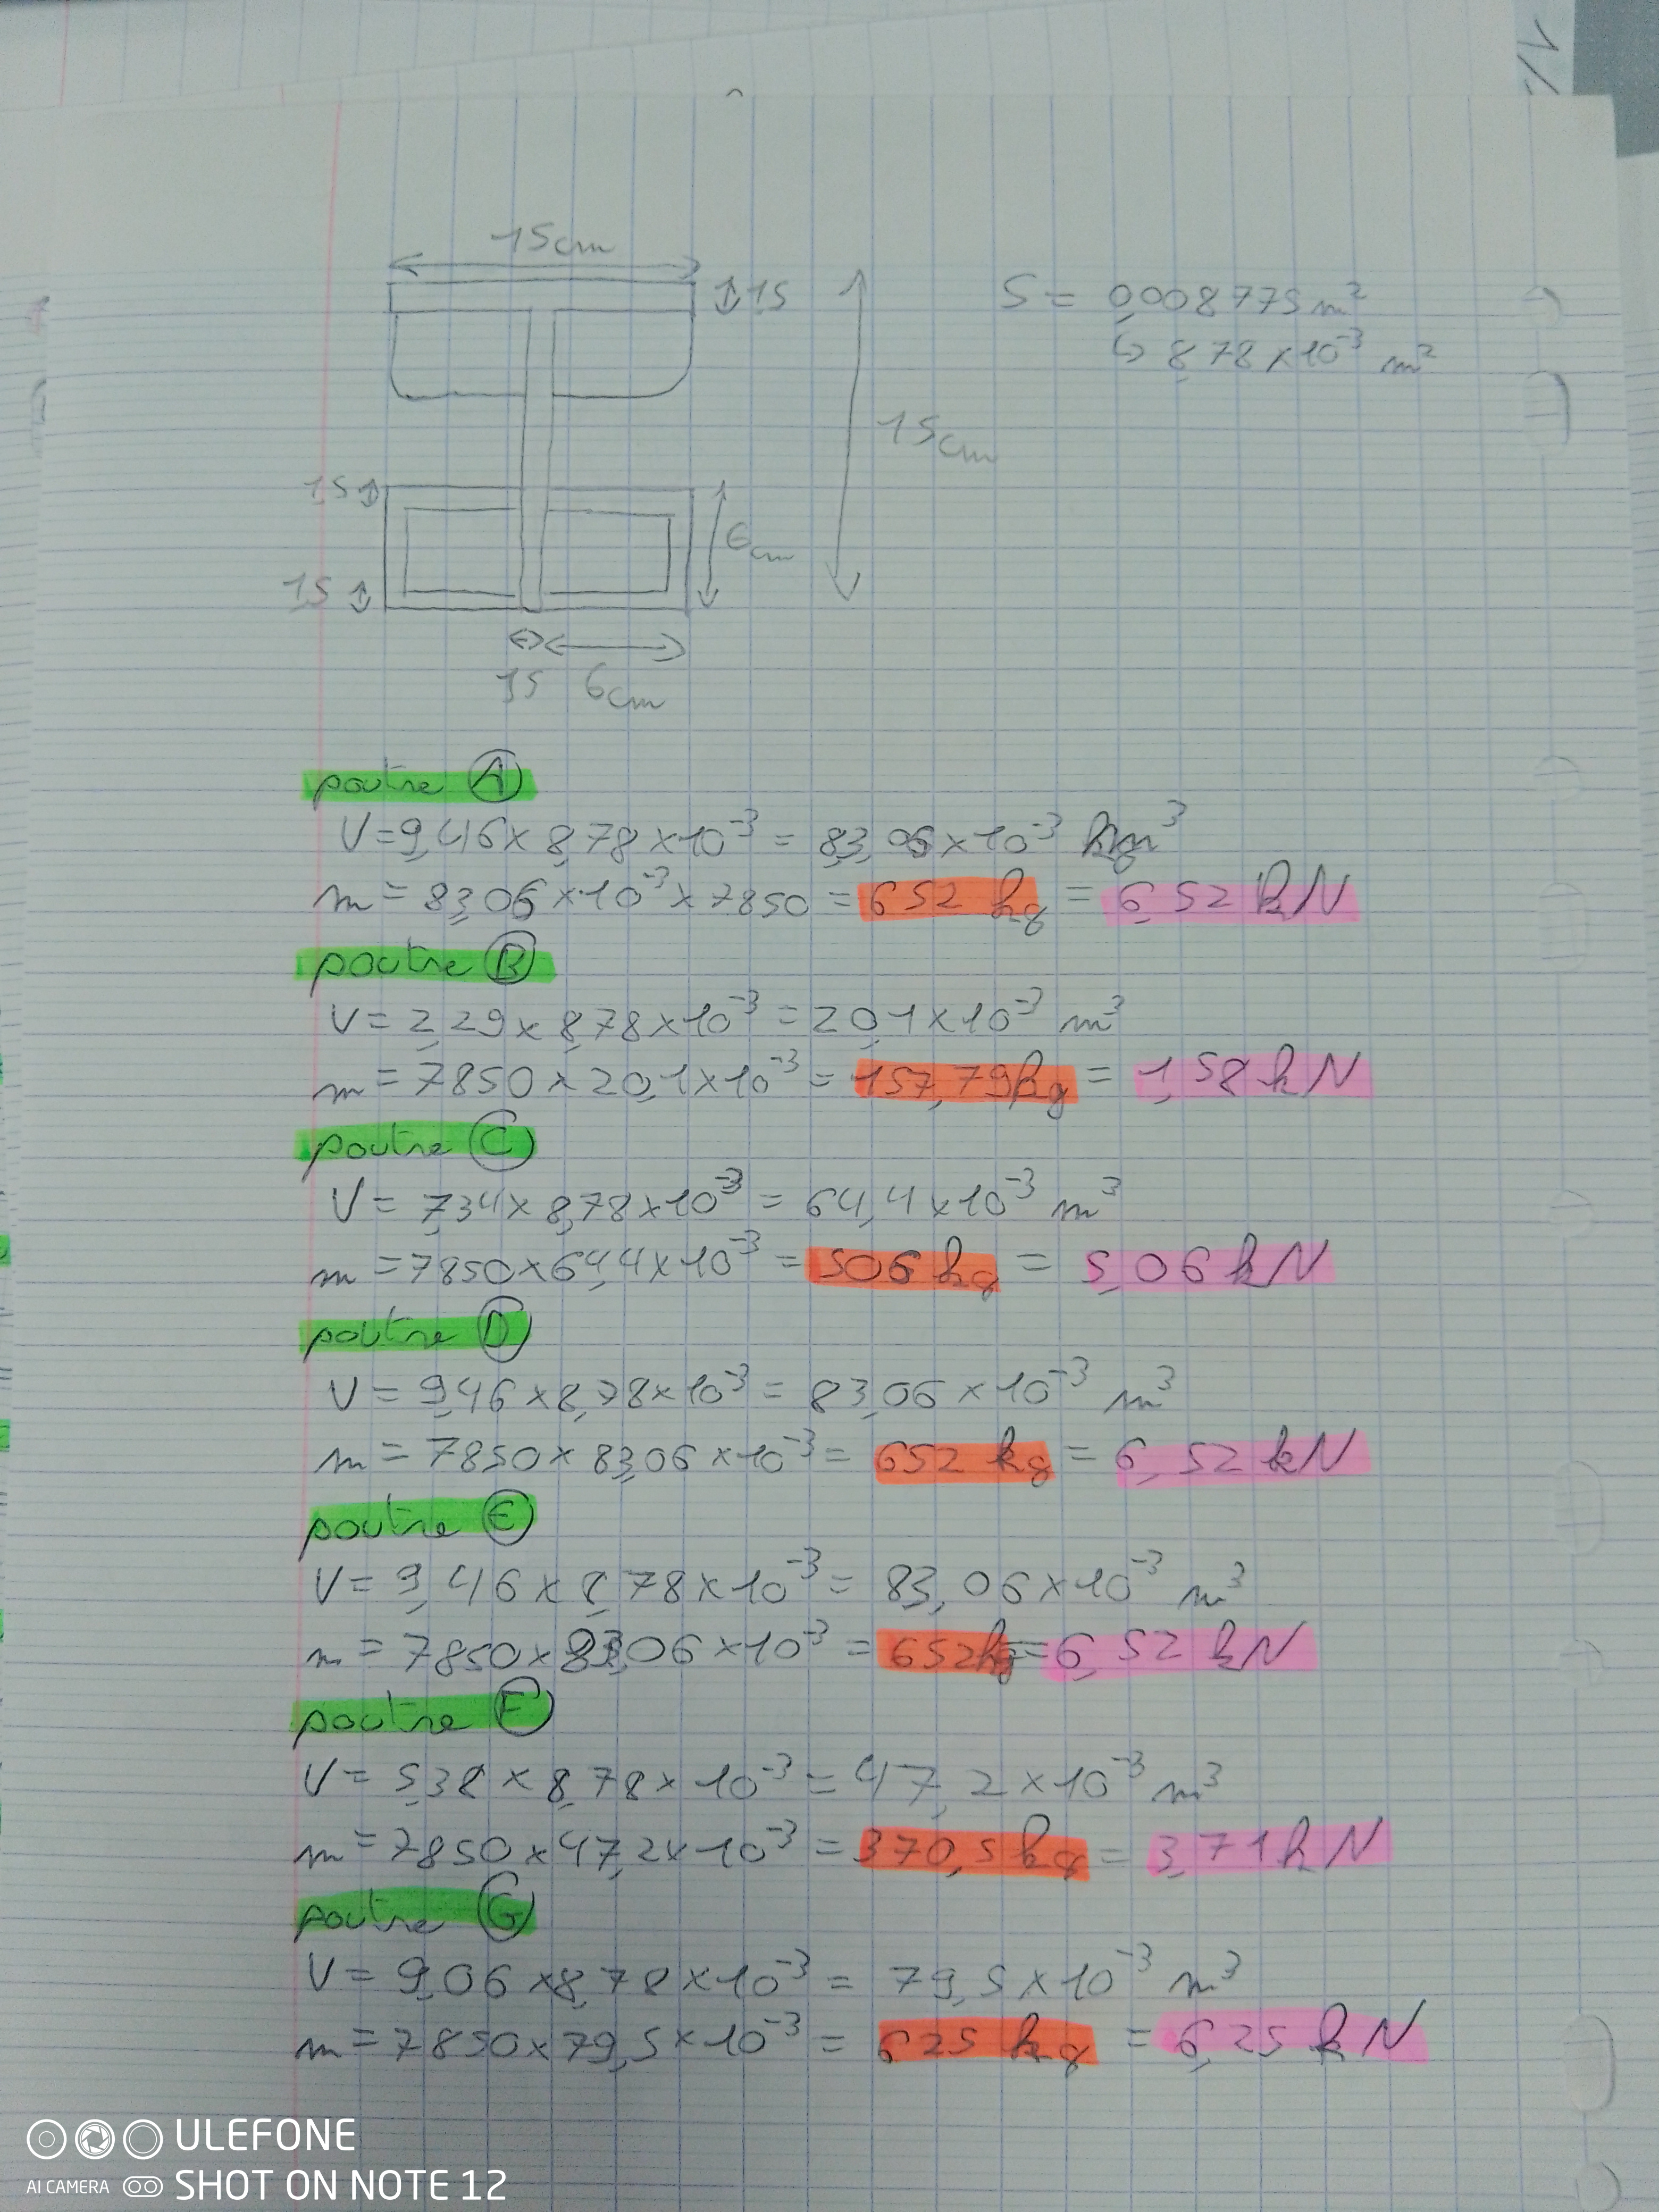 15cm
15
S = 0,008775 m²
↳ 8,78 × 10⁻³ m²
15cm
15
6cm
15
15 6cm
poutre Ⓐ
V = 9,46 × 8,78 × 10⁻³ = 83,06 × 10⁻³ m³
m = 83,06 × 10⁻³ × 7850 = 652 kg = 6,52 kN
poutre Ⓑ
V = 2,29 × 8,78 × 10⁻³ = 20,1 × 10⁻³ m³
m = 7850 × 20,1 × 10⁻³ = 157,79 kg = 1,58 kN
poutre Ⓒ
V = 7,34 × 8,78 × 10⁻³ = 64,4 × 10⁻³ m³
m = 7850 × 64,4 × 10⁻³ = 506 kg = 5,06 kN
poutre Ⓓ
V = 9,46 × 8,78 × 10⁻³ = 83,06 × 10⁻³ m³
m = 7850 × 83,06 × 10⁻³ = 652 kg = 6,52 kN
poutre Ⓔ
V = 9,46 × 8,78 × 10⁻³ = 83,06 × 10⁻³ m³
m = 7850 × 83,06 × 10⁻³ = 652 kg = 6,52 kN
poutre Ⓕ
V = 5,38 × 8,78 × 10⁻³ = 47,2 × 10⁻³ m³
m = 7850 × 47,2 × 10⁻³ = 370,5 kg = 3,71 kN
poutre Ⓖ
V = 9,06 × 8,78 × 10⁻³ = 79,5 × 10⁻³ m³
m = 7850 × 79,5 × 10⁻³ = 625 kg = 6,25 kN
ULEFONE
AI CAMERA SHOT ON NOTE 12